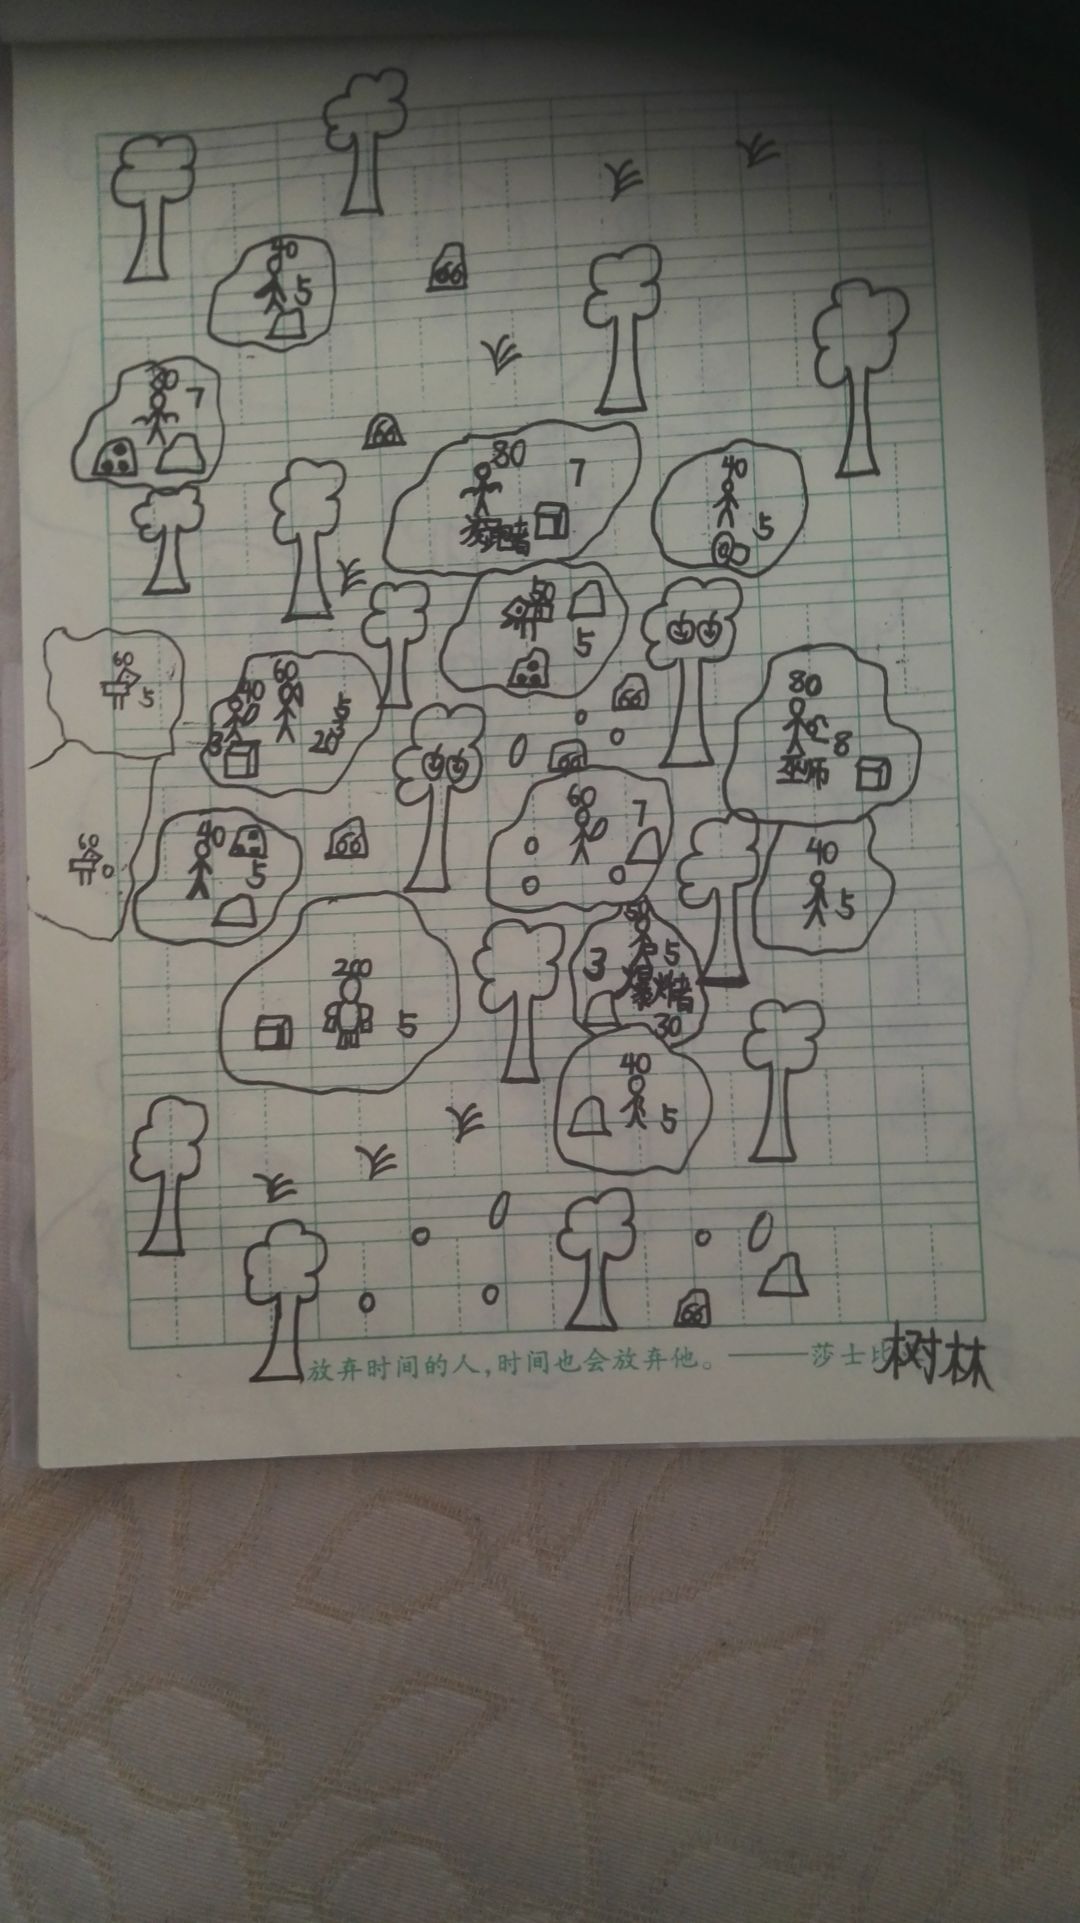 40
5
66
80
7
66
80
7
40
5
50
5
60
5
40
60
5
3
20
3
66
80
8
巫师
66
60
7
40
5
66
60
0
40
5
50
3
5
爆炸者
30
200
5
40
5
66
放弃时间的人,时间也会放弃他。——莎士比
树林